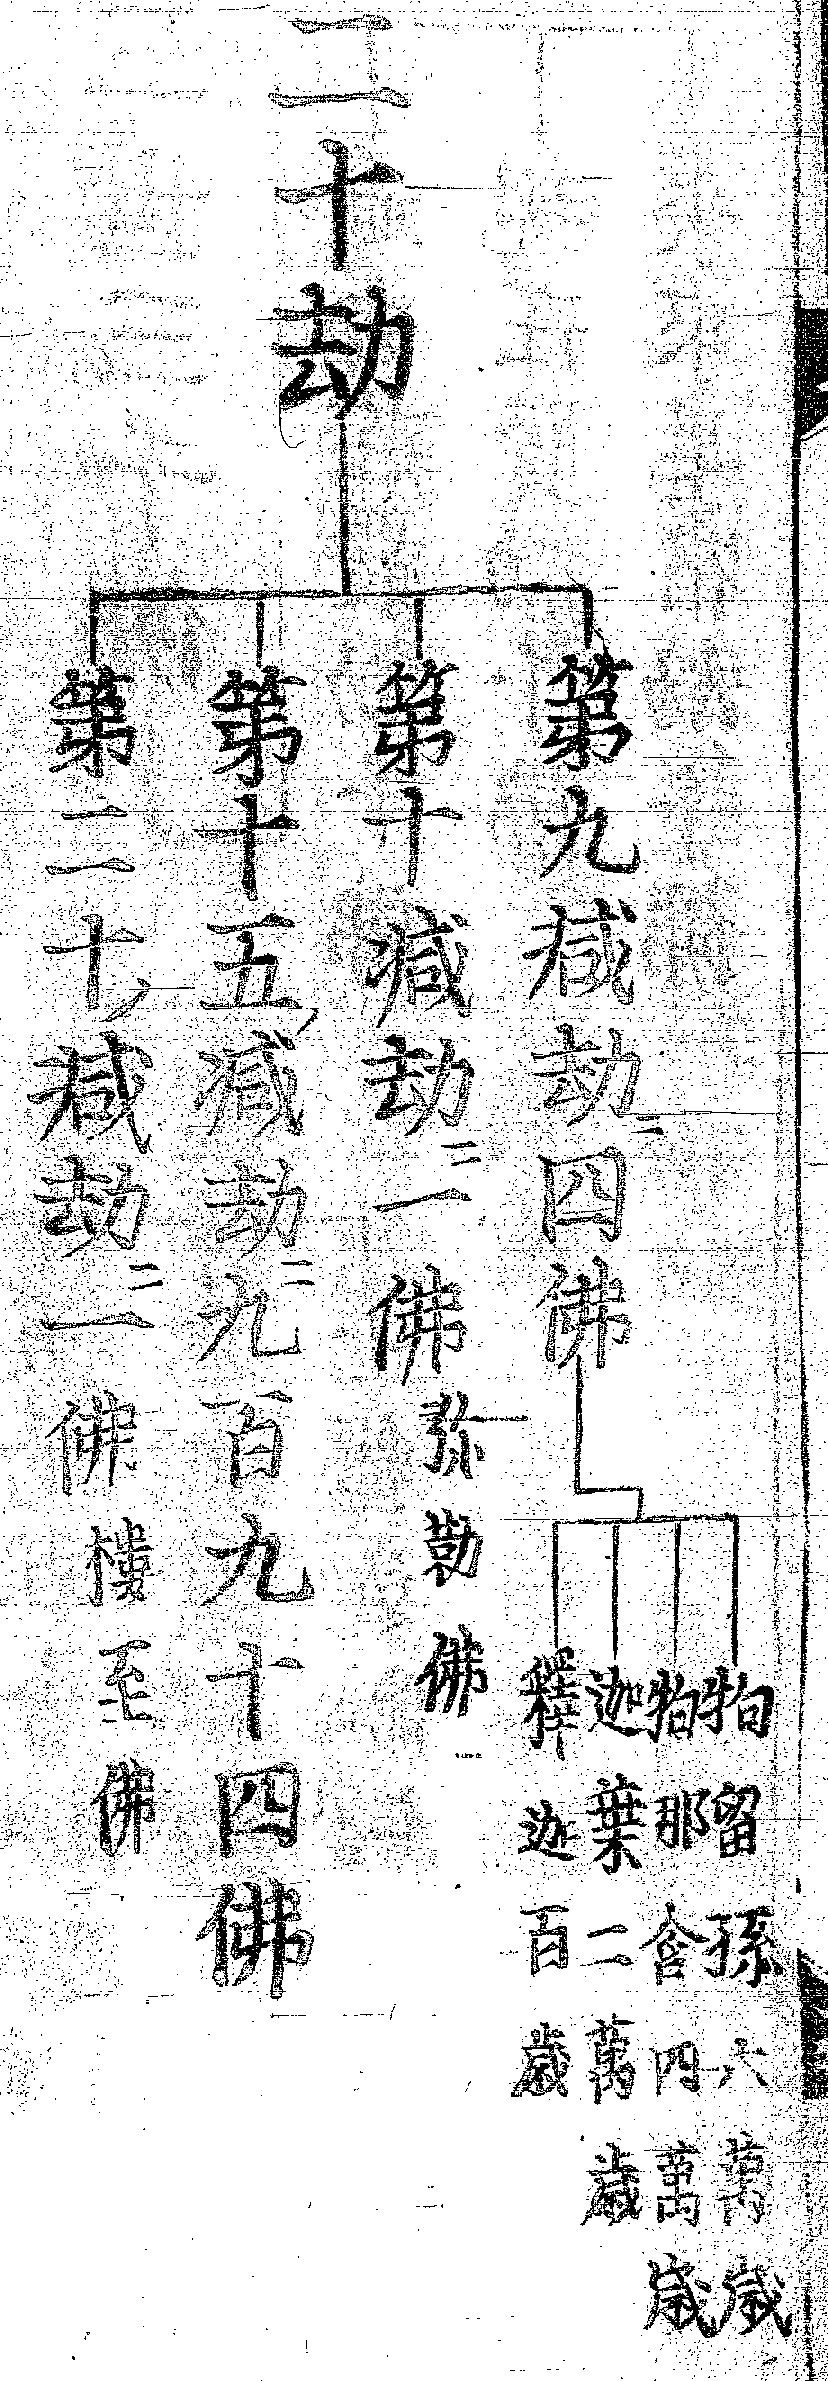 二十劫
第九減劫ニ四佛
拘留孫六萬歲
拘那含四萬歲
迦葉二萬歲
釋迦百歲
第十減劫ニ一佛弥勒佛
第十五減劫ニ九百九十四佛
第二十減劫ニ一佛樓至佛